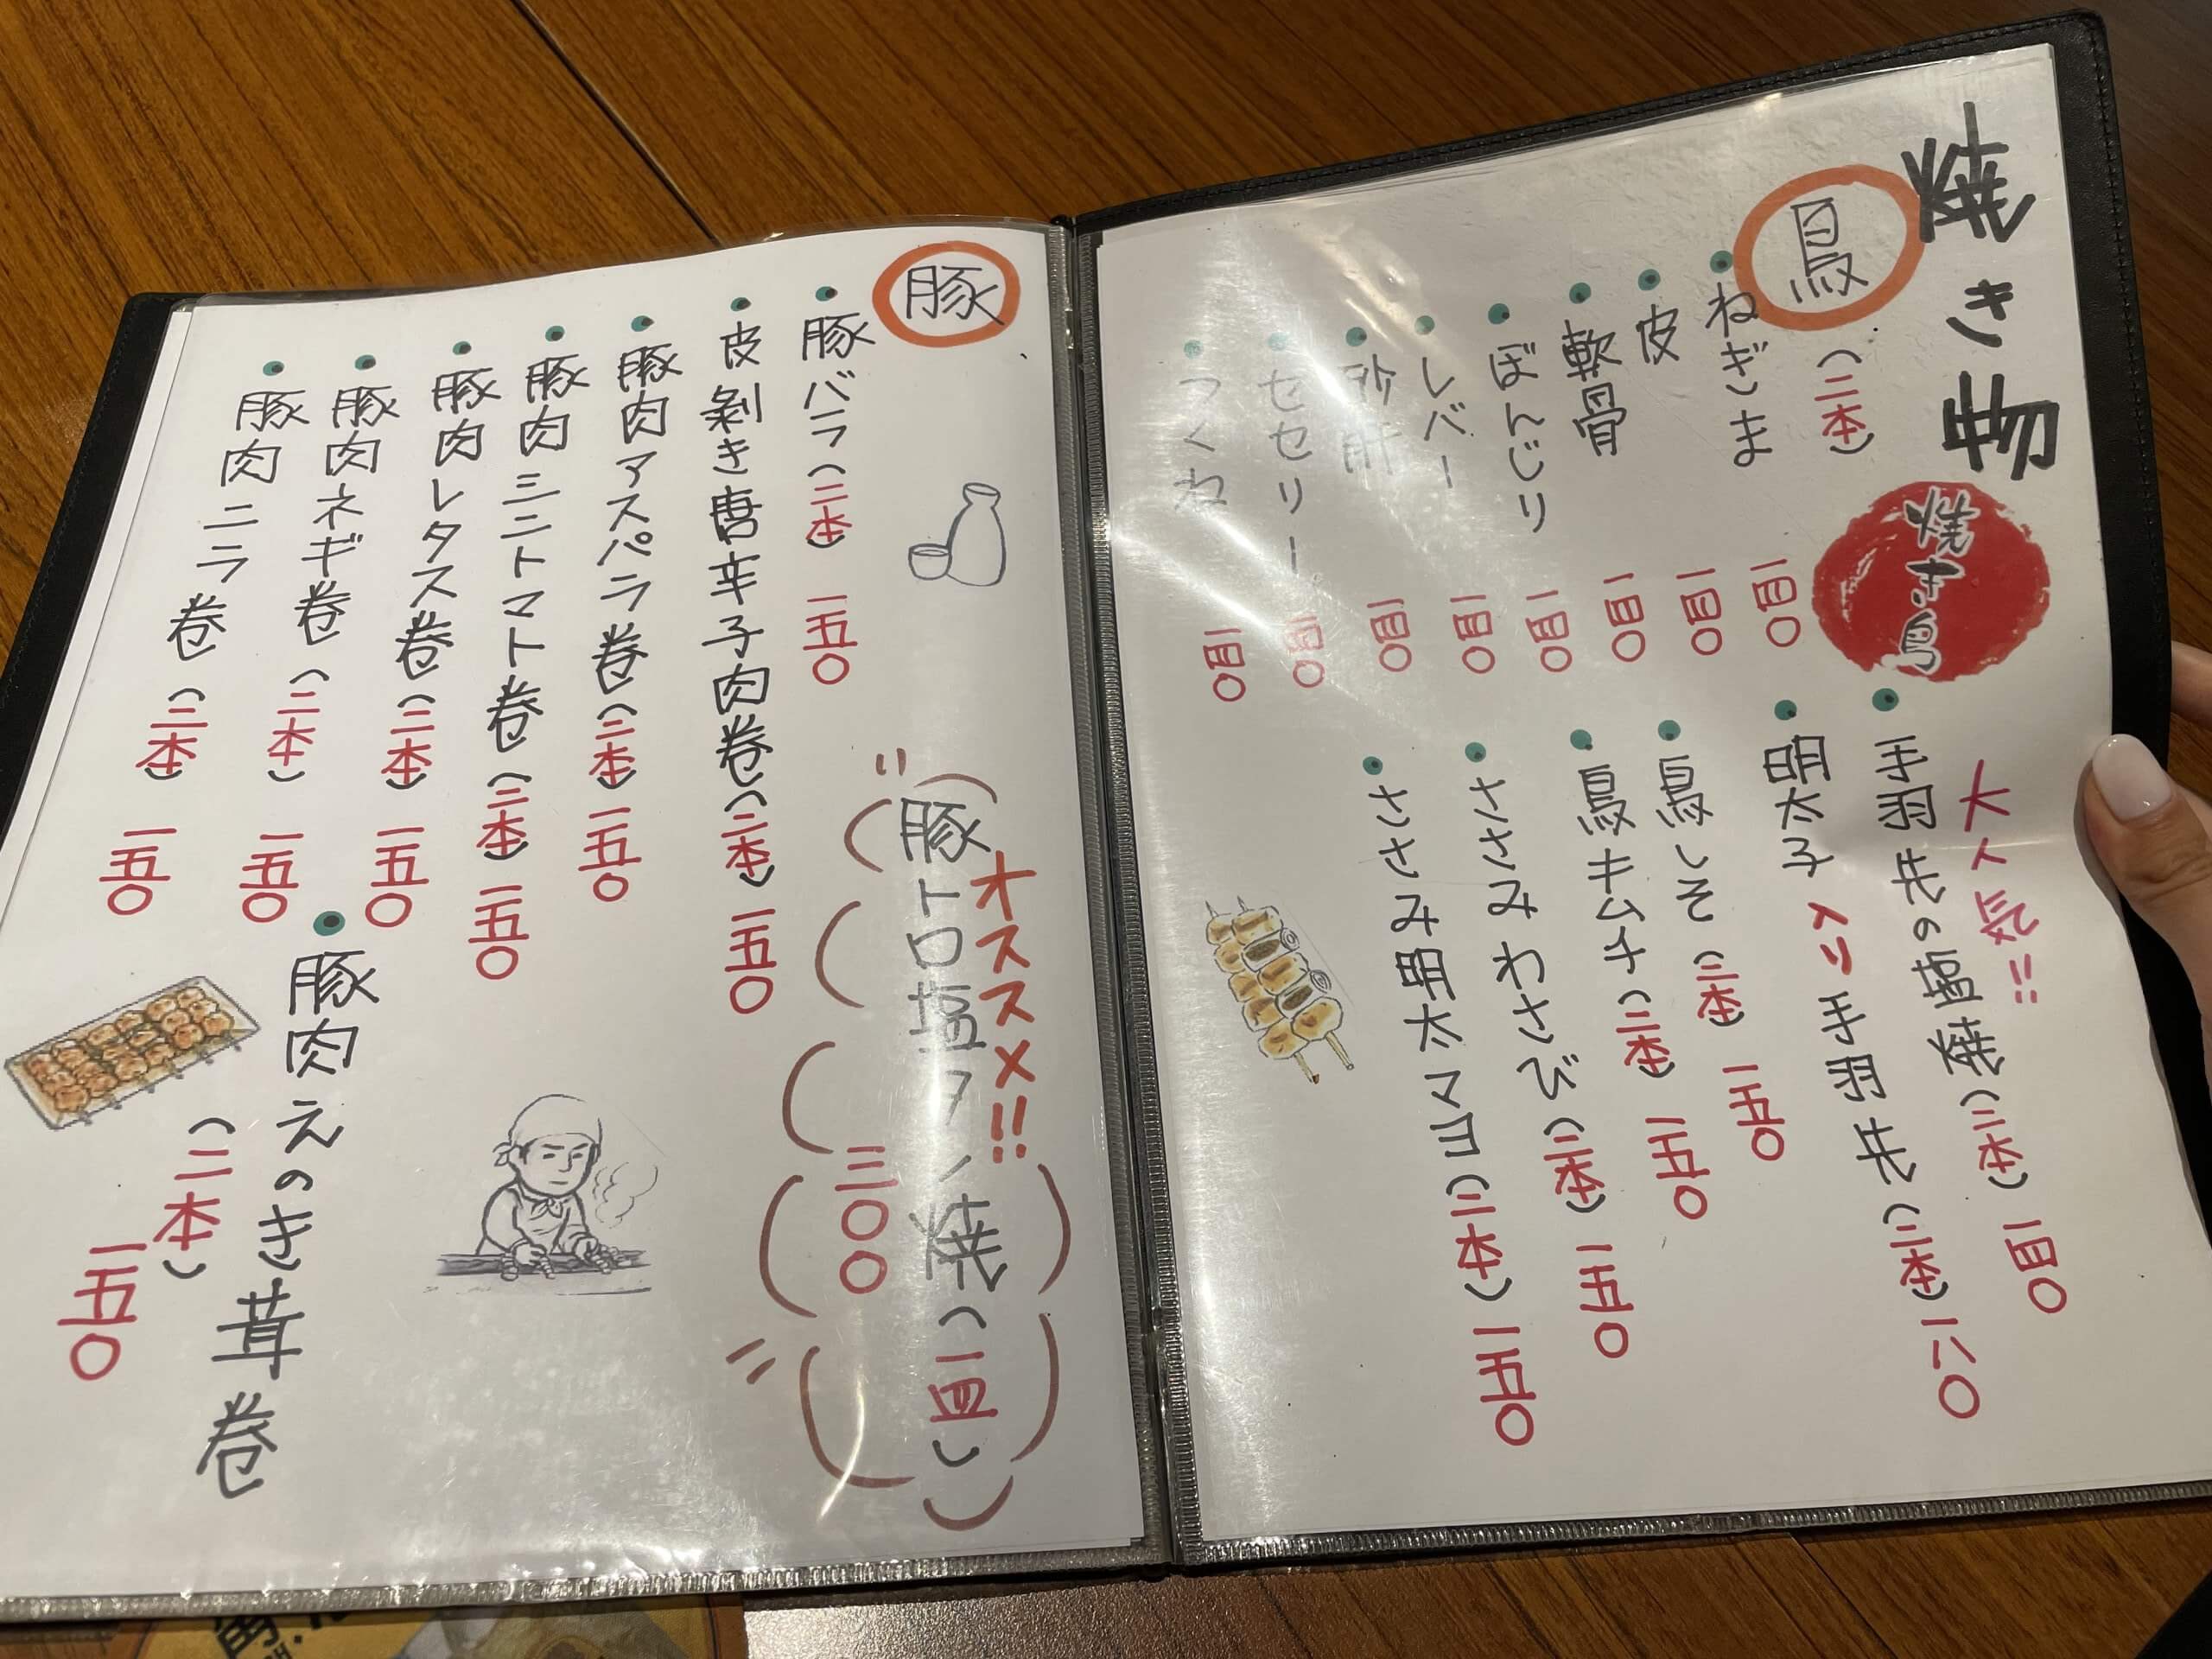 焼き鳥
焼き鳥
鳥 (二本)
ねぎま 一皿〇
皮 一皿〇
軟骨 一皿〇
ぼんじり 一皿〇
レバー 一皿〇
砂肝 一皿〇
セセリー 一皿〇
つくね 一皿〇
大人気!!
手羽先の塩焼(二本) 一皿〇
明太子入り手羽先(二本) 一二〇
鳥しそ(二本) 一五〇
鳥キムチ(二本) 一五〇
ささみわさび(二本) 一五〇
ささみ明太マヨ(二本) 一五〇
豚
豚バラ(二本) 一五〇
皮剝き唐辛子肉巻(二本) 一五〇
豚肉アスパラ巻(二本) 一五〇
豚肉ミニトマト巻(二本) 一五〇
豚肉レタス巻(二本) 一五〇
豚肉ネギ巻(二本) 一五〇
豚肉ニラ巻(二本) 一五〇
オススメ!!
豚トロ塩タン焼(一皿)
三〇〇
豚肉えのき茸巻
(二本)
一五〇